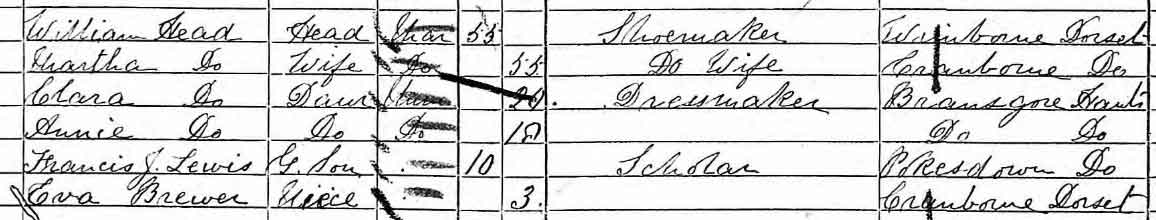 William Head Head Mar 55 Shoemaker Wimborne Dorset
Martha Do Wife Do 55 Do Wife Cranborne Do
Clara Do Daur Unm Dressmaker Bransgore Hants
Annie Do Do Do 18 Do Do
Francis J. Lewis G. Son 10 Scholar Pokesdown Do
Eva Brewer Niece 3. Cranborne Dorset